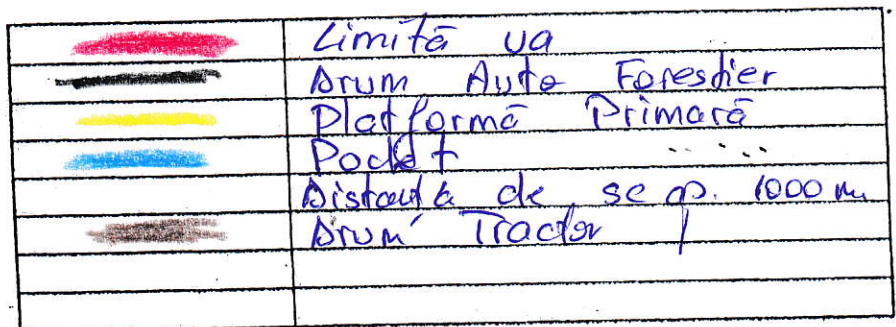 Limită ua
Drum Auto Forestier
Platformă Primară
Podet
Distanta de sc ap. 1000 m
Drum Tractor